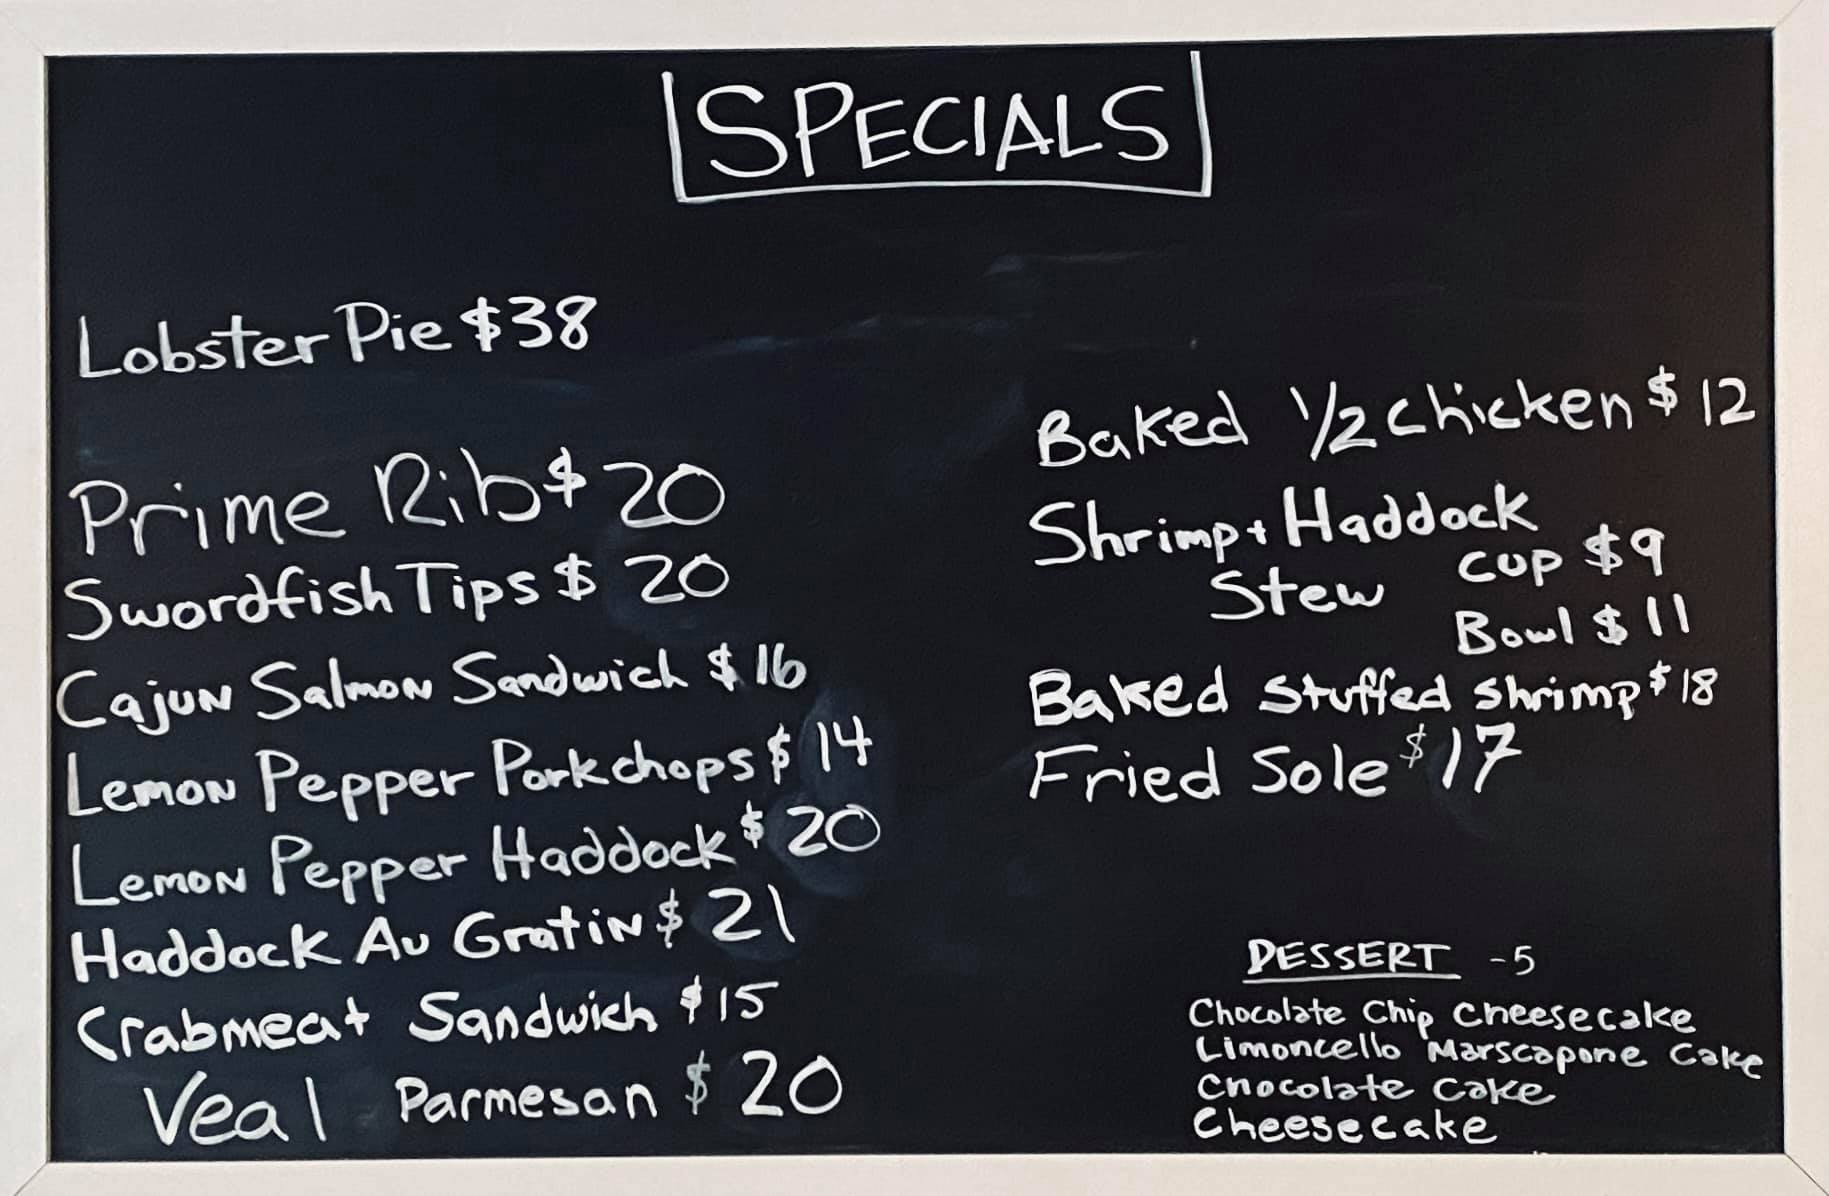 SPECIALS
Lobster Pie $38
Prime Rib $20
Swordfish Tips $ 20
Cajun Salmon Sandwich $16
Lemon Pepper Porkchops $ 14
Lemon Pepper Haddock $ 20
Haddock Au Gratin $ 21
Crabmeat Sandwich $15
Veal Parmesan $ 20
Baked 1/2 Chicken $ 12
Shrimp + Haddock
Stew Cup $9
Bowl $11
Baked Stuffed Shrimp $18
Fried Sole $17
DESSERT -5
Chocolate Chip Cheesecake
Limoncello Marscapone Cake
Chocolate Cake
Cheesecake